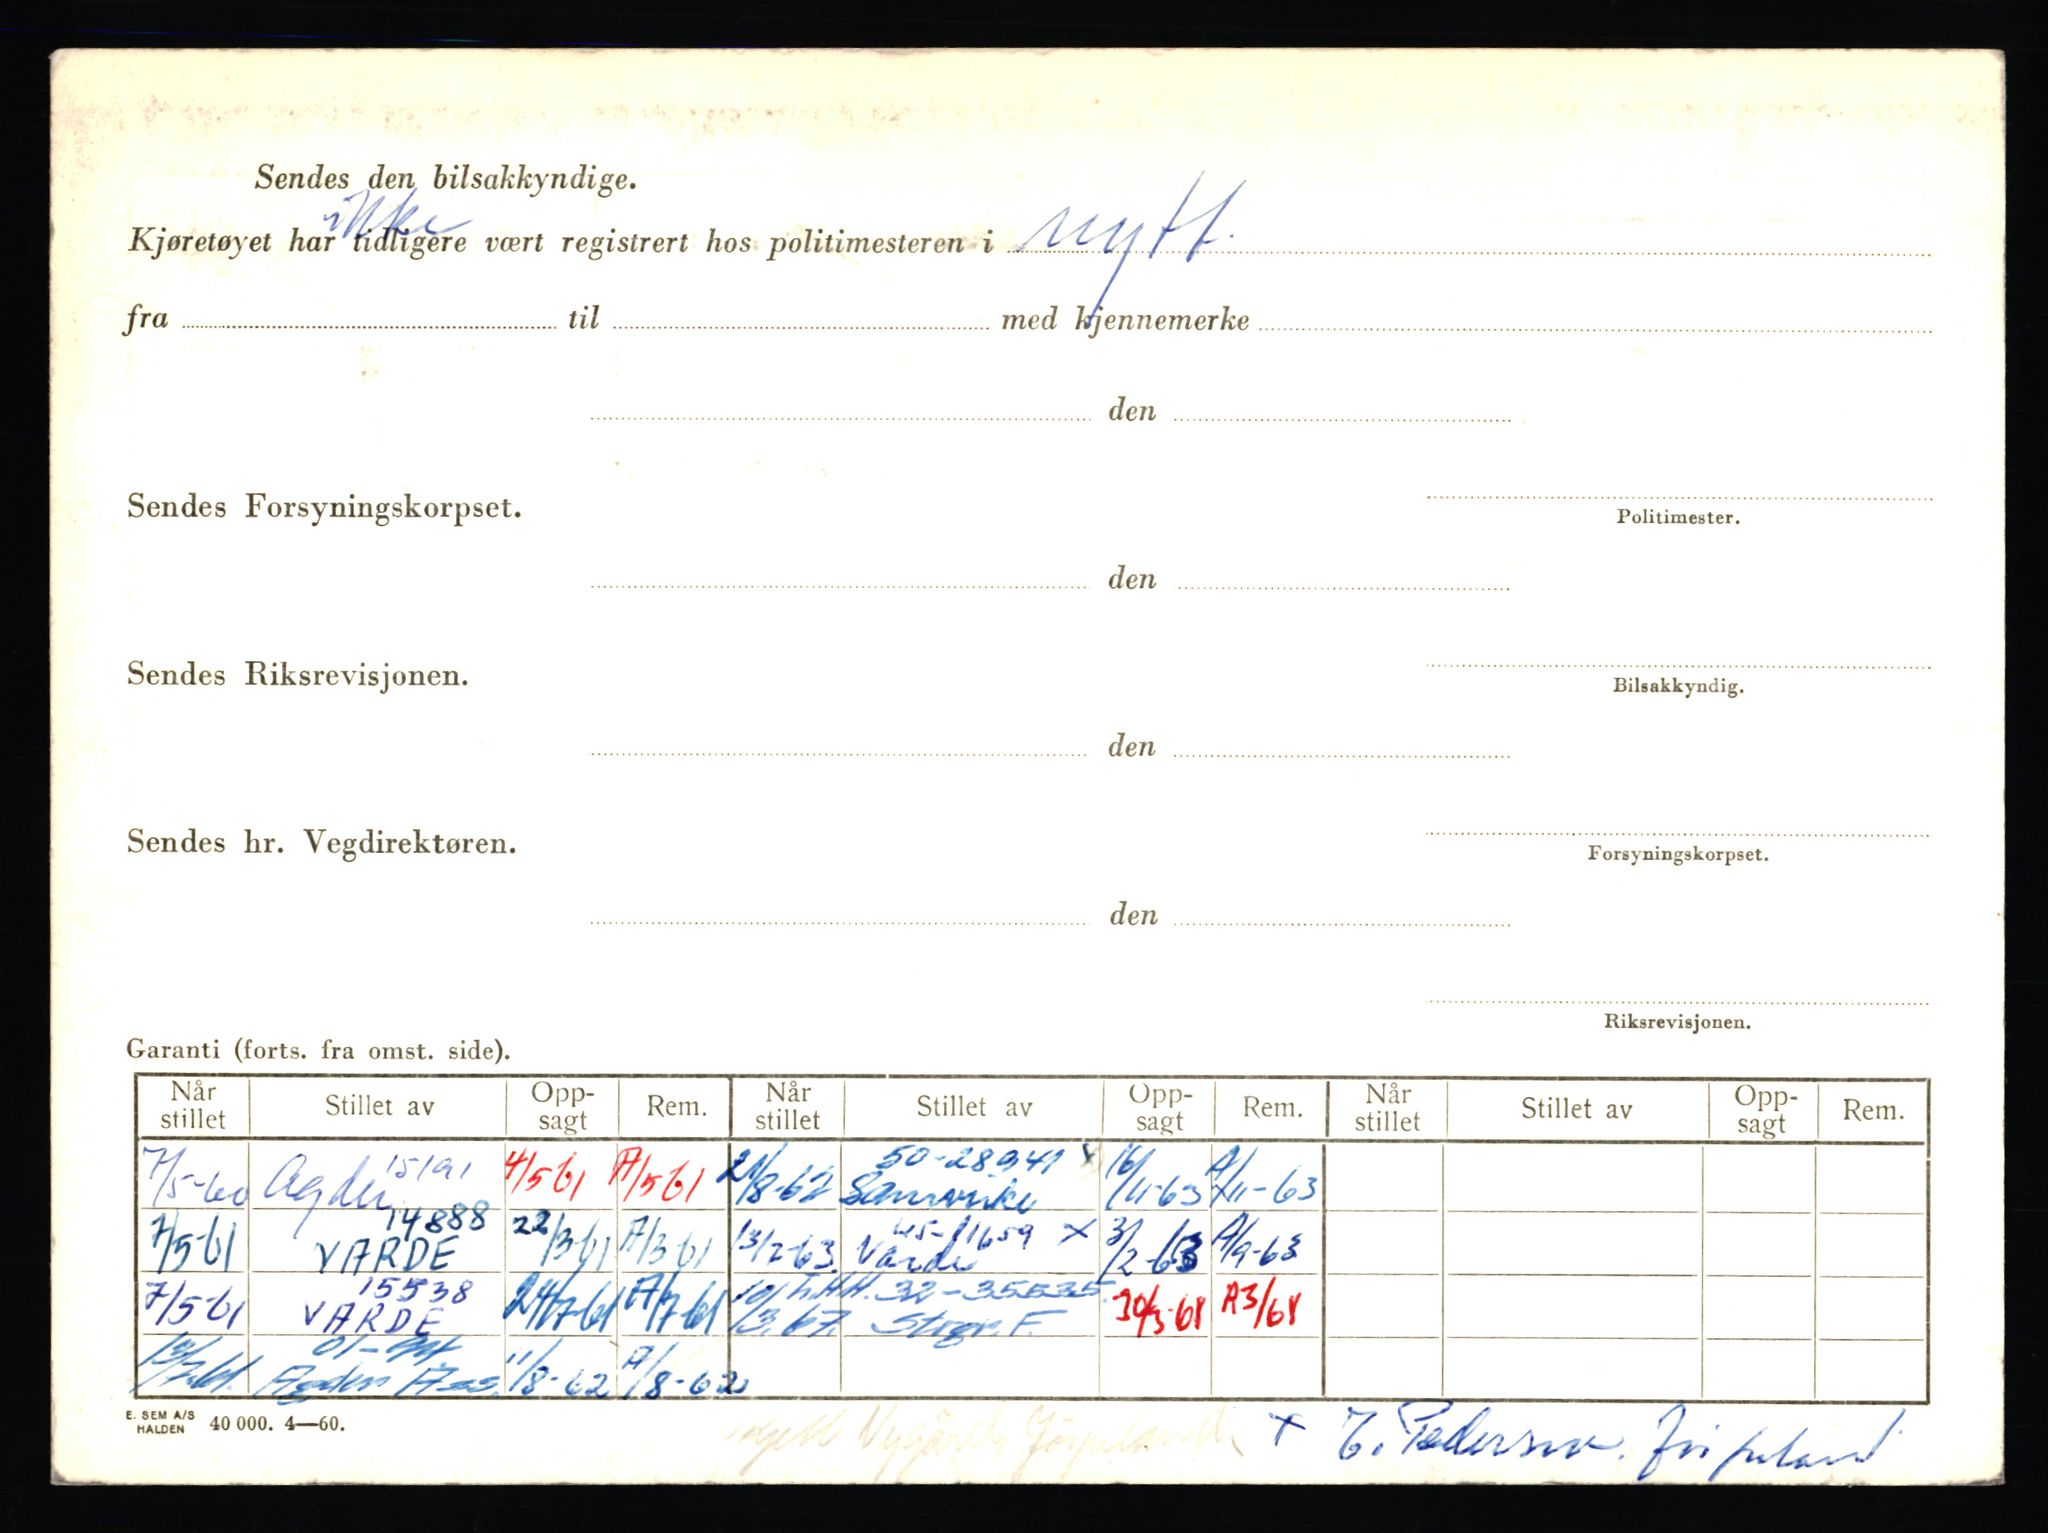 Sendes den bilsakkyndige.
ikke
Kjøretøyet har tidligere vært registrert hos politimesteren i nytt.
fra til med kjennemerke
den
Sendes Forsyningskorpset.
Politimester.
den
Sendes Riksrevisjonen.
Bilsakkyndig.
den
Sendes hr. Vegdirektøren.
Forsyningskorpset.
den
Riksrevisjonen.
Garanti (forts. fra omst. side).
Når stillet Stillet av Opp-sagt Rem. Når stillet Stillet av Opp-sagt Rem. Når stillet Stillet av Opp-sagt Rem.
7/5-60 Agder 15191 4/5 61 A/5 61 21/8-62 50-28941 x Samvirke 16/11-63 A/11-63
7/5-61 14888 VARDE 22/3-61 A/3-61 13/2-63. 45-11659 x Varde 3/2-63 A/9-63
7/5-61 15538 VARDE 24/7-61 A/7-61 10/3.67. T.H.H. 32-35535. Storgt. F. 30/3-68 A3/68
13/7-61. 01- Agder Ass. 11/8-62 A/8-62
E. SEM A/S
HALDEN 40 000. 4—60.
Nygård, Jørpeland x T. Pedersen. Jørpeland